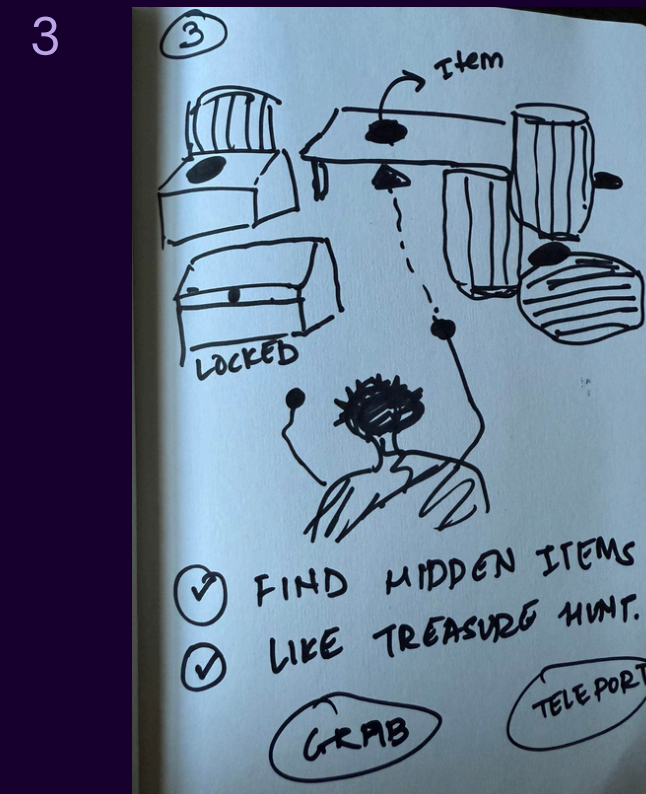 3
3
Item
LOCKED
FIND HIDDEN ITEMS
LIKE TREASURE HUNT.
GRAB
TELEPORT